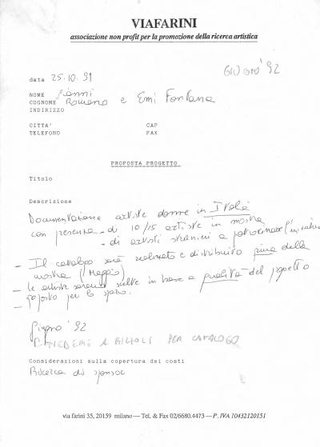 VIAFARINI
associazione non profit per la promozione della ricerca artistica
GIUGNO '92
data 25.10.91
NOME Gianni
COGNOME Romano e Emi Fontana
INDIRIZZO
CITTA' CAP
TELEFONO FAX
PROPOSTA PROGETTO
Titolo
Descrizione
Documentazione artiste donne in Italia
con presenza - di 10/15 artiste in mostra
- di artisti stranieri a
- Il catalogo sarà realizzato e distribuito prima della
mostra (Maggio)
- le artiste saranno scelte in base a qualità del progetto
proposto per lo spazio.
Giugno '92
PER CATALOGO
Considerazioni sulla copertura dei costi
Ricerca di sponsor
via farini 35, 20159 milano — Tel. & Fax 02/6680.4473 — P. IVA 10432120151